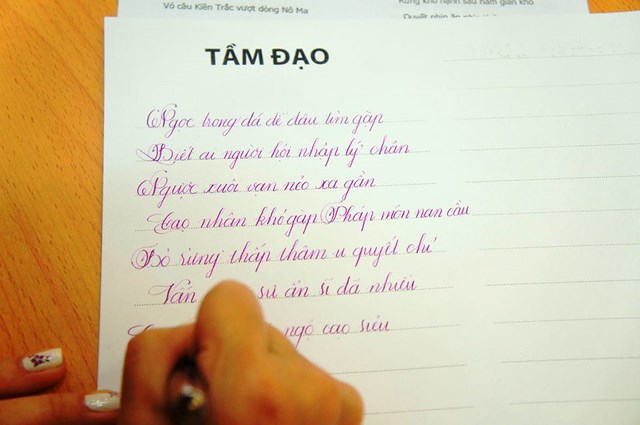 Vó câu Kiền Trắc vượt dòng Nô Ma
Rừng khổ hạnh sáu năm gian khổ
TẦM ĐẠO
Ngọc trong đá dễ đâu tìm gặp
Biết ai người hội nhập lý chân
Ngược xuôi vạn nẻo xa gần
Cao nhân khó gặp Pháp môn nan cầu
Bỏ rừng thấp thâm u quyết chí
Vấn sư ẩn sĩ đã nhiều
ngộ cao siêu